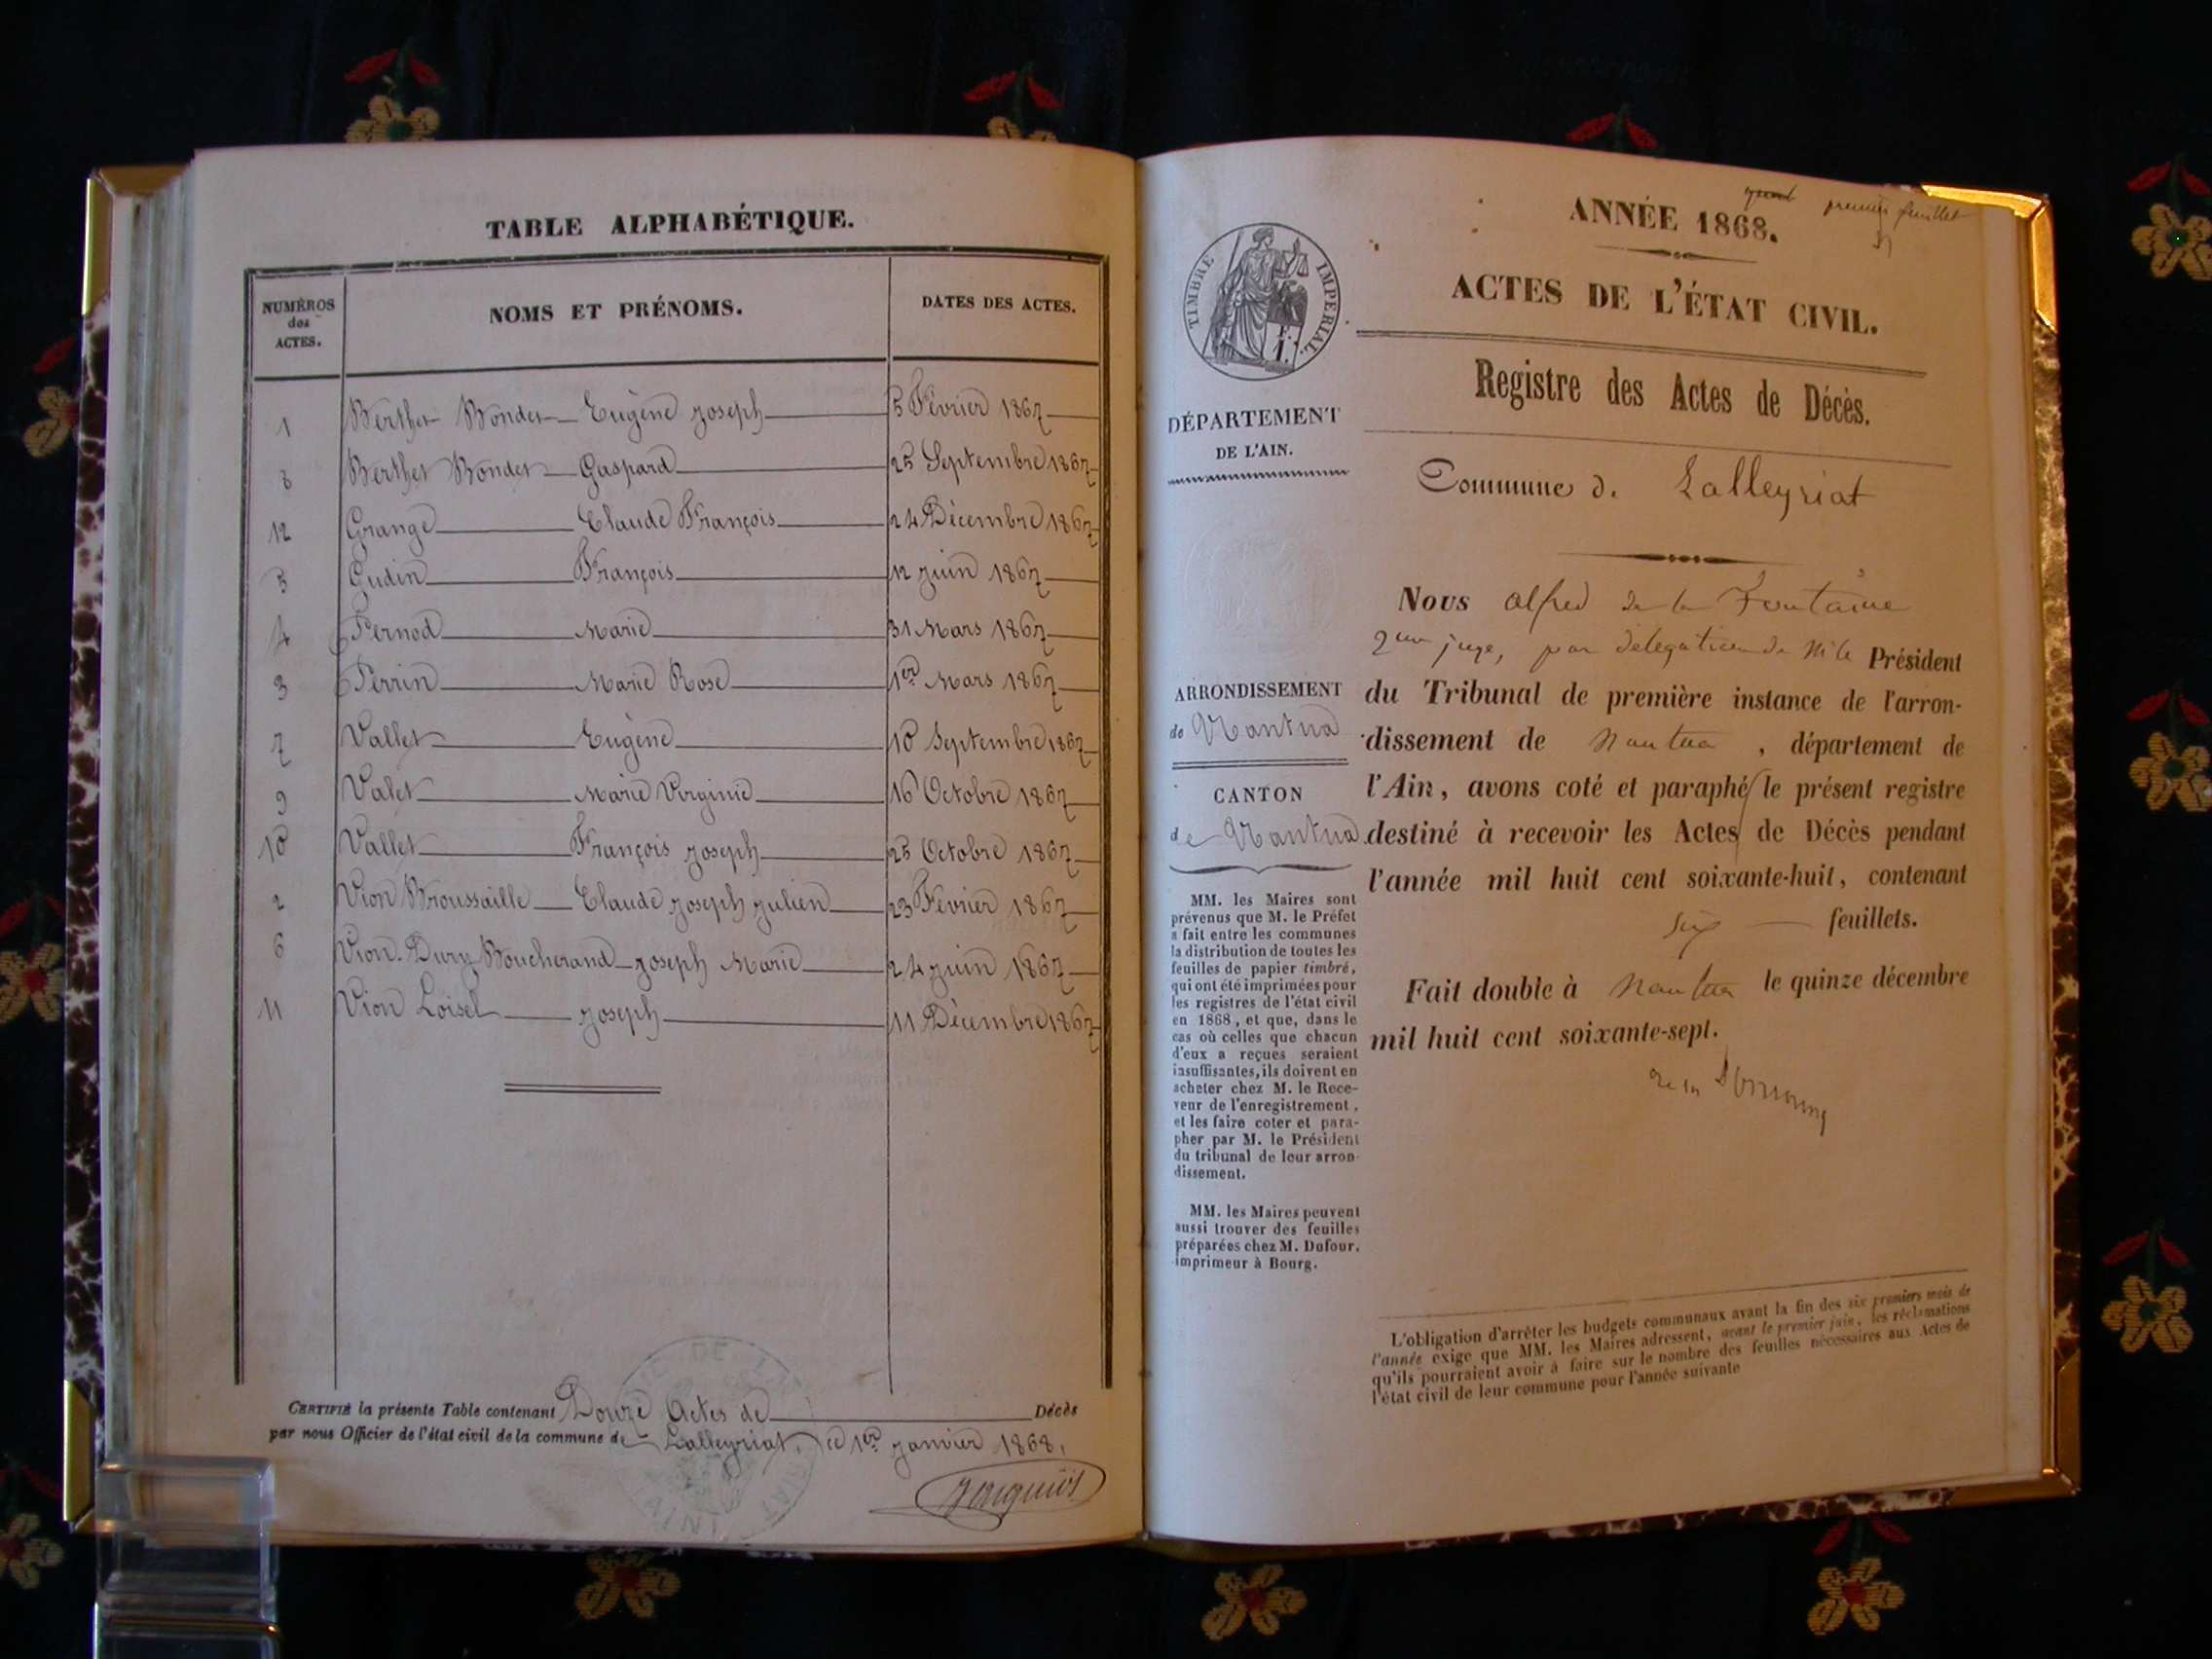 TABLE ALPHABÉTIQUE.
NUMÉROS des ACTES. NOMS ET PRÉNOMS. DATES DES ACTES.
1 Berthet Bondet Eugène Joseph 5 Février 1867
8 Berthet Bondet Gaspard 25 Septembre 1867
12 Grange Claude François 24 Décembre 1867
5 Gudin François 12 Juin 1867
4 Pernod Marie 31 Mars 1867
3 Perrin Marie Rose 1er Mars 1867
7 Vallet Eugène 10 Septembre 1867
9 Valet Marie Virginie 16 Octobre 1867
10 Vallet François Joseph 25 Octobre 1867
2 Vion Broussaille Claude Joseph Julien 23 Février 1867
6 Vion-Dury Boucherand Joseph Marie 24 Juin 1867
11 Vion Loisel Joseph 11 Décembre 1867
CERTIFIÉ la présente Table contenant Douze Actes de Décès
par nous Officier de l'état civil de la commune de Lalleyriat, ce 1er Janvier 1868.
premier feuillet
ANNÉE 1868.
ACTES DE L'ÉTAT CIVIL.
Registre des Actes de Décès.
Commune de Lalleyriat
TIMBRE IMPÉRIAL
DÉPARTEMENT
DE L'AIN.
ARRONDISSEMENT
de Nantua
CANTON
de Nantua
MM. les Maires sont
prévenus que M. le Préfet
a fait entre les communes
la distribution de toutes les
feuilles de papier timbré,
qui ont été imprimées pour
les registres de l'état civil
en 1868, et que, dans le
cas où celles que chacun
d'eux a reçues seraient
insuffisantes, ils doivent en
acheter chez M. le Rece-
veur de l'enregistrement,
et les faire coter et para-
pher par M. le Président
du tribunal de leur arron-
dissement.
MM. les Maires peuvent
aussi trouver des feuilles
préparées chez M. Dufour,
imprimeur à Bourg.
Nous Alfred de la Fontaine
juge, par délégation de Mr le Président
du Tribunal de première instance de l'arron-
dissement de Nantua, département de
l'Ain, avons coté et paraphé le présent registre
destiné à recevoir les Actes de Décès pendant
l'année mil huit cent soixante-huit, contenant
six feuillets.
Fait double à Nantua le quinze décembre
mil huit cent soixante-sept.
L'obligation d'arrêter les budgets communaux avant la fin des six premiers mois de
l'année exige que MM. les Maires adressent, avant le premier juin, les réclamations
qu'ils pourraient avoir à faire sur le nombre des feuilles nécessaires aux Actes de
l'état civil de leur commune pour l'année suivante